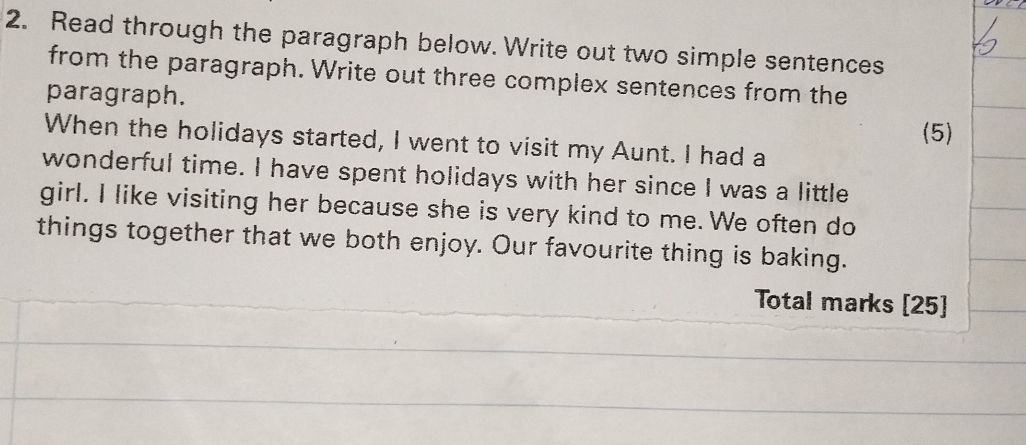 2. Read through the paragraph below. Write out two simple sentences
from the paragraph. Write out three complex sentences from the
paragraph.
(5)
When the holidays started, I went to visit my Aunt. I had a
wonderful time. I have spent holidays with her since I was a little
girl. I like visiting her because she is very kind to me. We often do
things together that we both enjoy. Our favourite thing is baking.
Total marks [25]